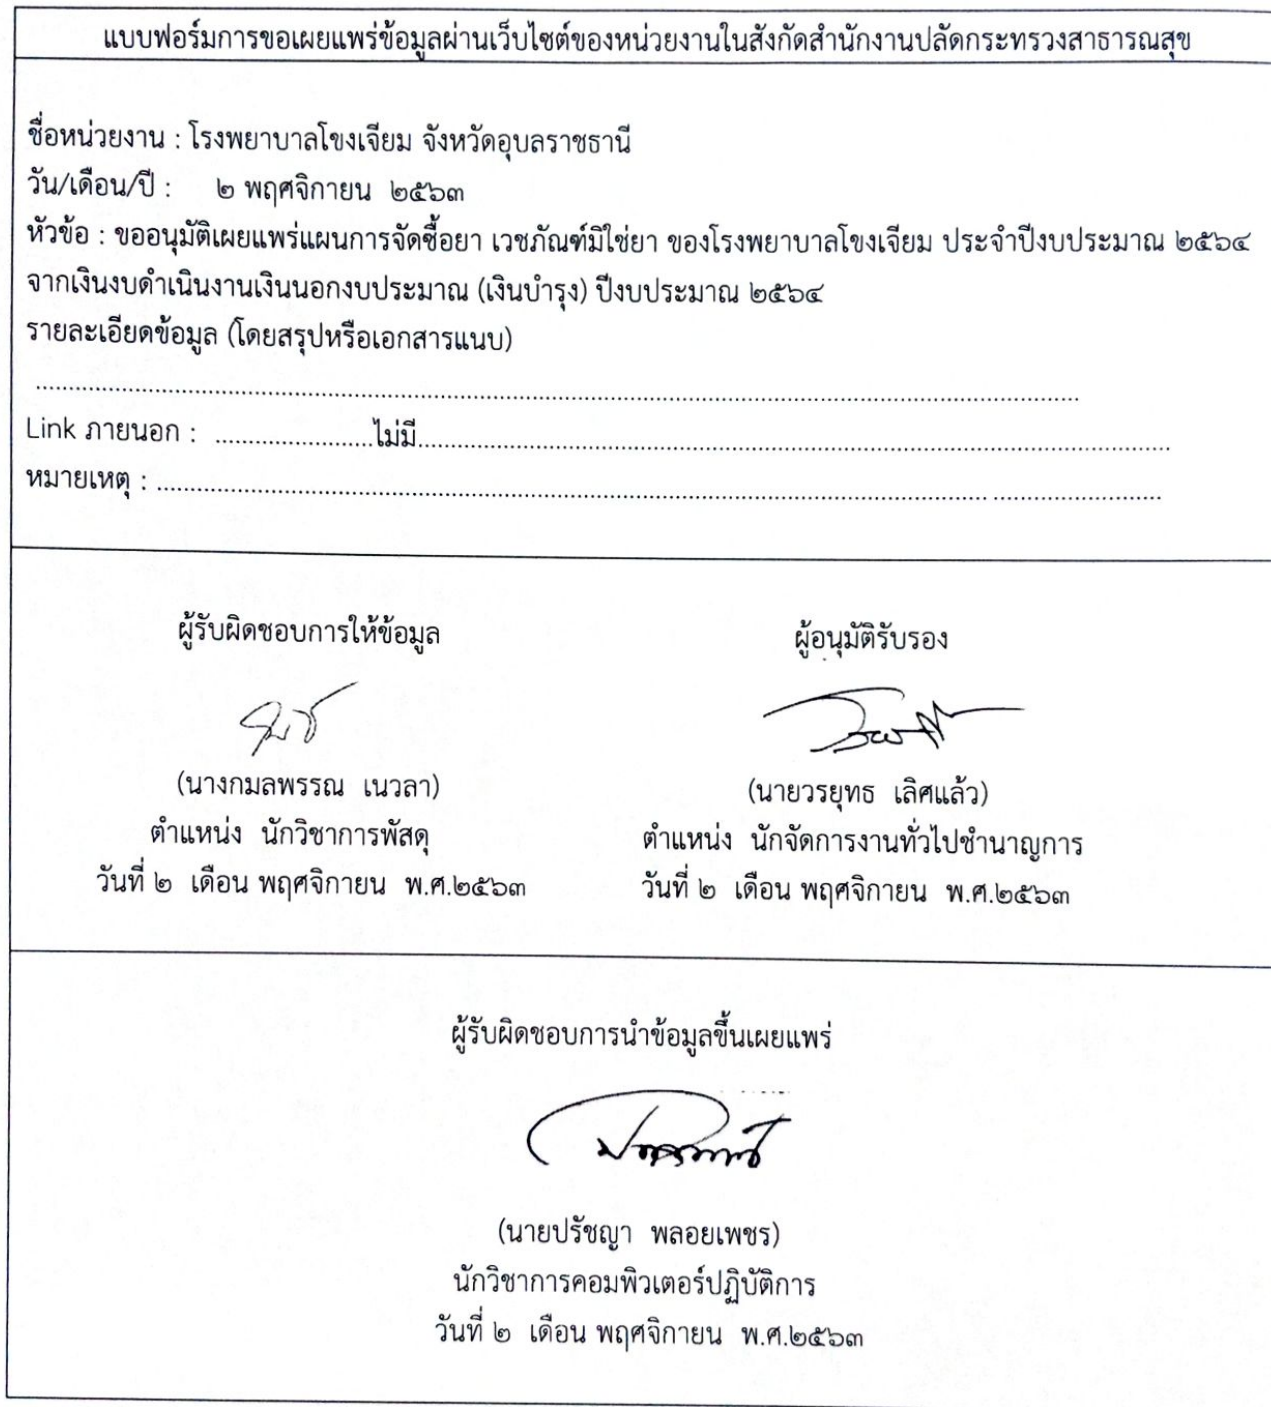 แบบฟอร์มการขอเผยแพร่ข้อมูลผ่านเว็บไซต์ของหน่วยงานในสังกัดสำนักงานปลัดกระทรวงสาธารณสุข
ชื่อหน่วยงาน : โรงพยาบาลโขงเจียม จังหวัดอุบลราชธานี
วัน/เดือน/ปี : ๒ พฤศจิกายน ๒๕๖๓
หัวข้อ : ขออนุมัติเผยแพร่แผนการจัดซื้อยา เวชภัณฑ์มิใช่ยา ของโรงพยาบาลโขงเจียม ประจำปีงบประมาณ ๒๕๖๔
จากเงินงบดำเนินงานเงินนอกงบประมาณ (เงินบำรุง) ปีงบประมาณ ๒๕๖๔
รายละเอียดข้อมูล (โดยสรุปหรือเอกสารแนบ)
Link ภายนอก : ........................ไม่มี........................
หมายเหตุ : ........................
ผู้รับผิดชอบการให้ข้อมูล ผู้อนุมัติรับรอง
(นางกมลพรรณ เนวลา) (นายวรยุทธ เลิศแล้ว)
ตำแหน่ง นักวิชาการพัสดุ ตำแหน่ง นักจัดการงานทั่วไปชำนาญการ
วันที่ ๒ เดือน พฤศจิกายน พ.ศ.๒๕๖๓ วันที่ ๒ เดือน พฤศจิกายน พ.ศ.๒๕๖๓
ผู้รับผิดชอบการนำข้อมูลขึ้นเผยแพร่
(นายปรัชญา พลอยเพชร)
นักวิชาการคอมพิวเตอร์ปฏิบัติการ
วันที่ ๒ เดือน พฤศจิกายน พ.ศ.๒๕๖๓